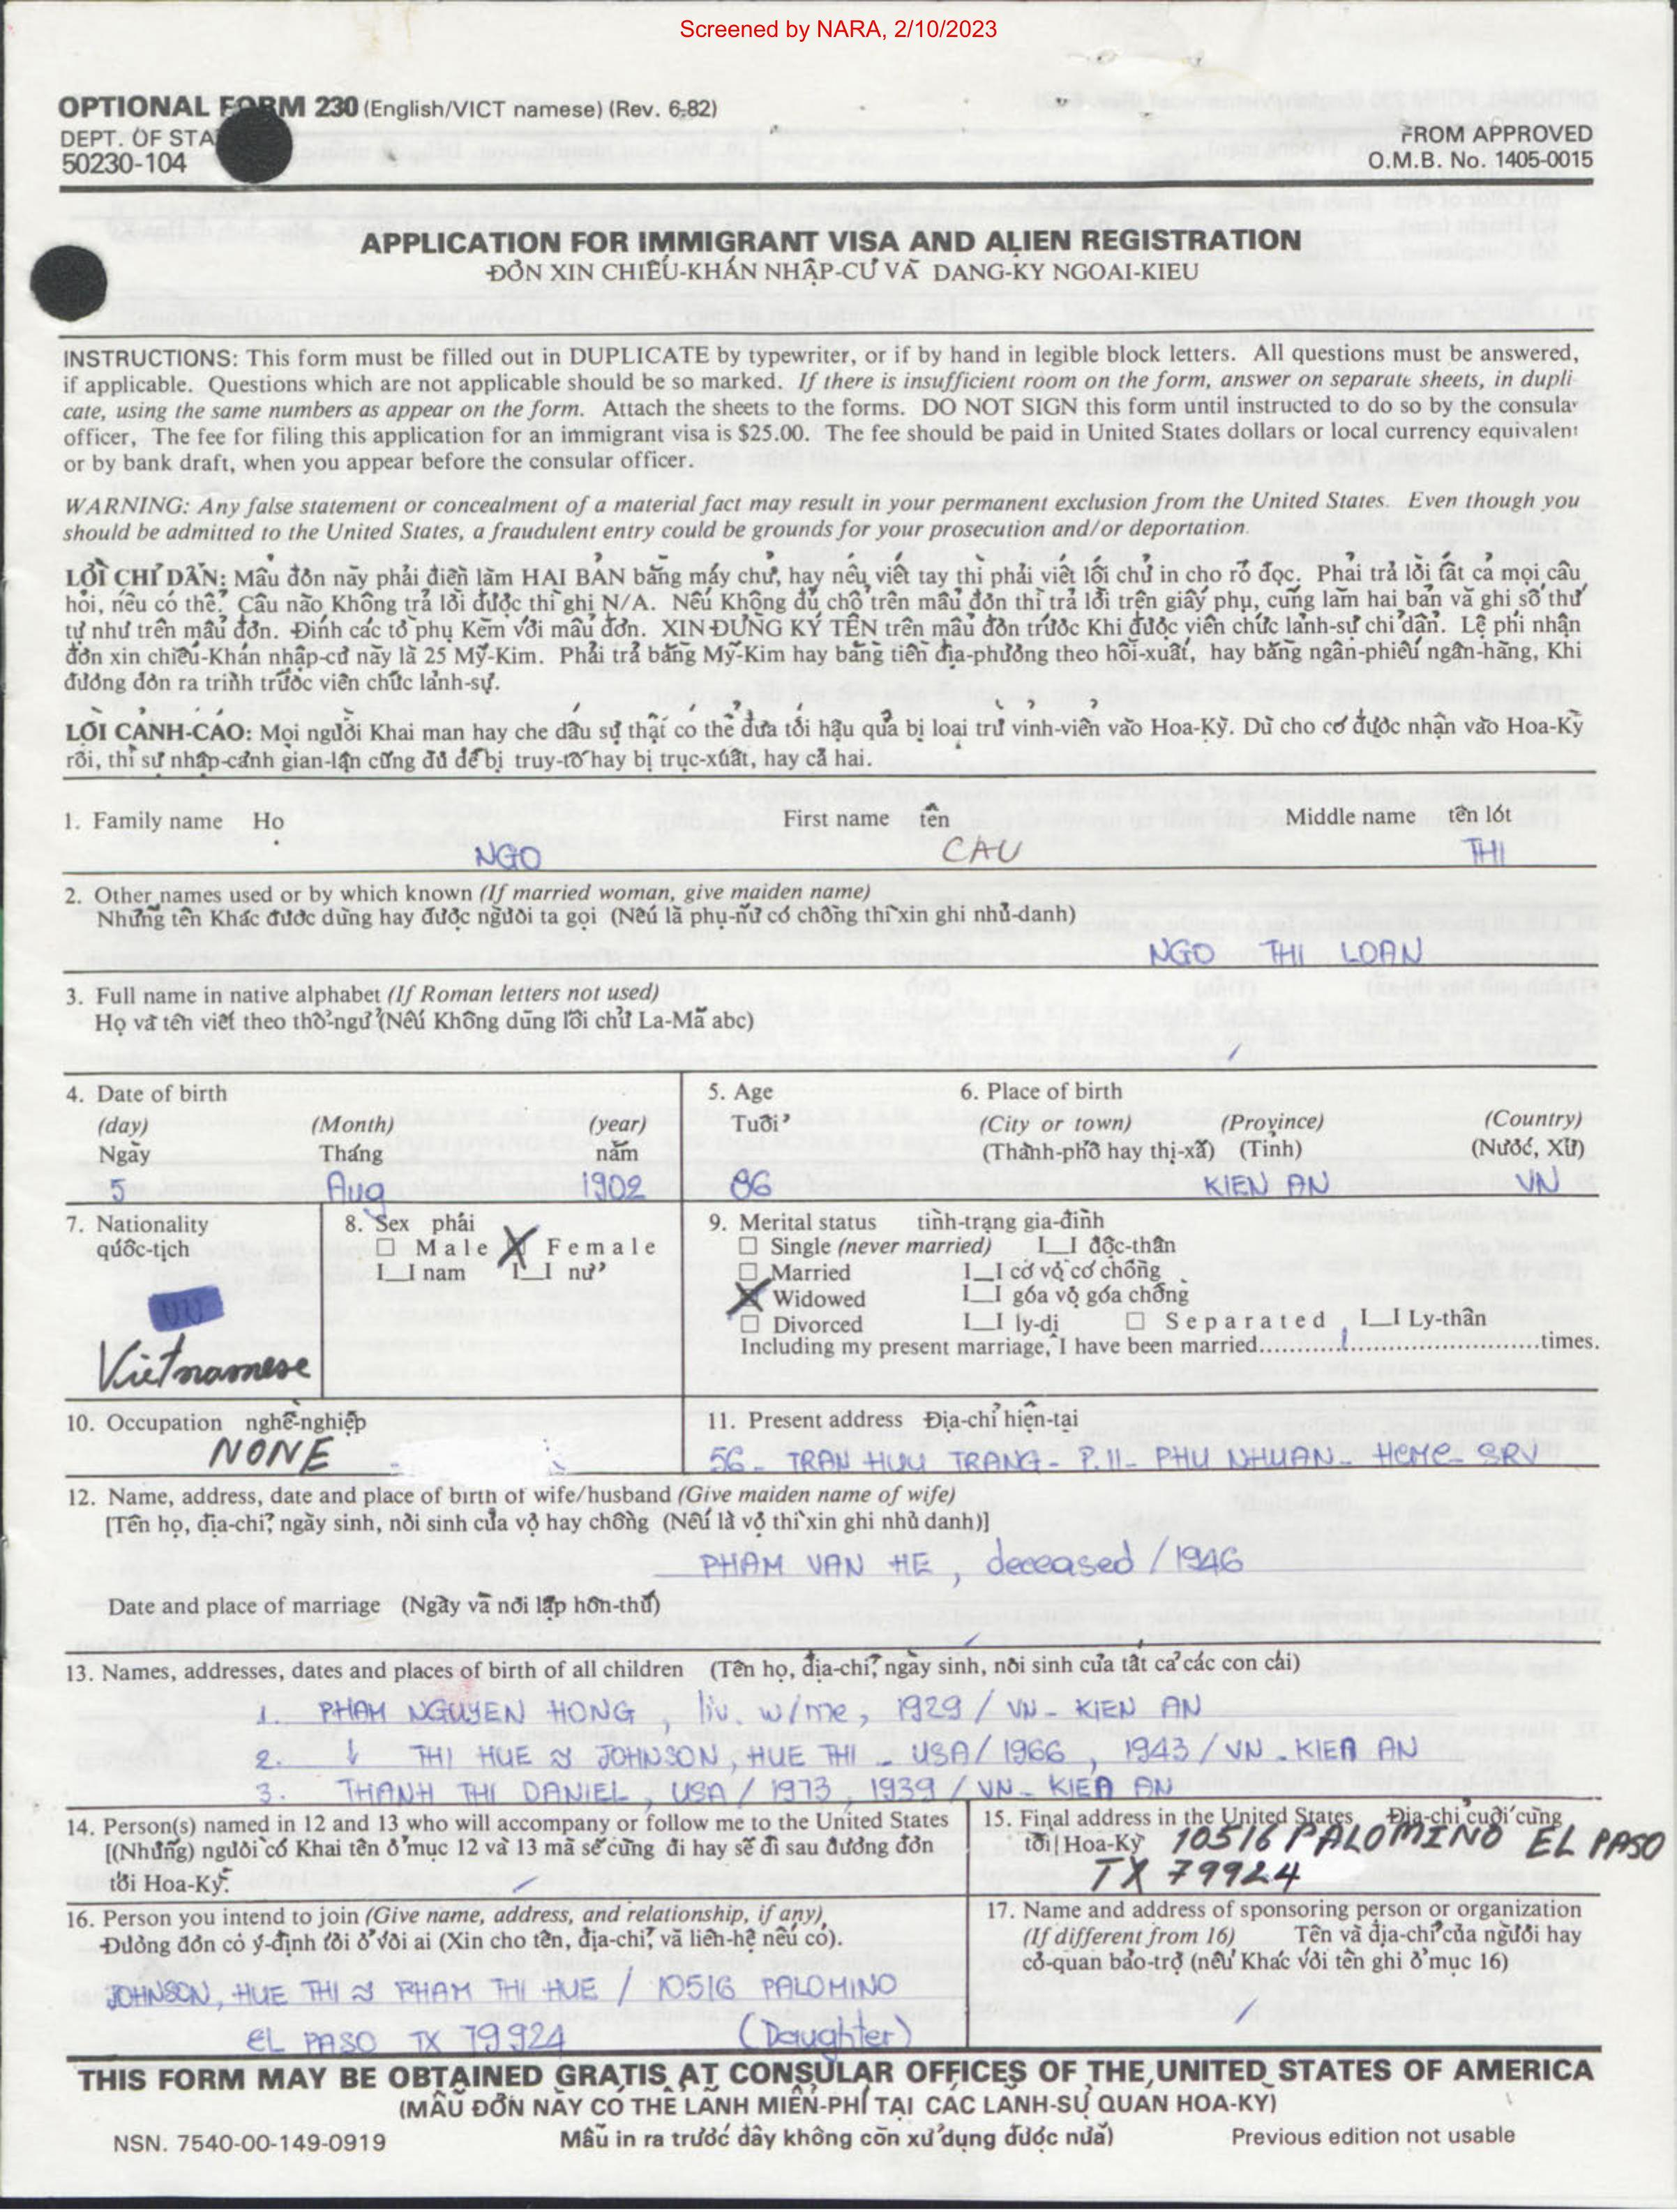 Screened by NARA, 2/10/2023
OPTIONAL FORM 230 (English/VICT namese) (Rev. 6-82)
DEPT. OF STA
50230-104
FROM APPROVED
O.M.B. No. 1405-0015
APPLICATION FOR IMMIGRANT VISA AND ALIEN REGISTRATION
ĐỎN XIN CHIẾU-KHÁN NHẬP-CƯ VÀ DANG-KY NGOAI-KIEU
INSTRUCTIONS: This form must be filled out in DUPLICATE by typewriter, or if by hand in legible block letters. All questions must be answered,
if applicable. Questions which are not applicable should be so marked. If there is insufficient room on the form, answer on separate sheets, in dupli-
cate, using the same numbers as appear on the form. Attach the sheets to the forms. DO NOT SIGN this form until instructed to do so by the consular
officer, The fee for filing this application for an immigrant visa is $25.00. The fee should be paid in United States dollars or local currency equivalent
or by bank draft, when you appear before the consular officer.
WARNING: Any false statement or concealment of a material fact may result in your permanent exclusion from the United States. Even though you
should be admitted to the United States, a fraudulent entry could be grounds for your prosecution and/or deportation.
LỜI CHỈ DẪN: Mẫu đơn này phải điền làm HAI BẢN bằng máy chử, hay nếu viết tay thì phải viết lối chử in cho rỏ đọc. Phải trả lời tất cả mọi câu
hỏi, nếu có thể. Câu nào Không trả lời được thì ghi N/A. Nếu Không đủ chỗ trên mẫu đơn thì trả lời trên giấy phụ, cũng làm hai bản và ghi số thứ
tự như trên mẫu đơn. Đính các tờ phụ Kèm với mẫu đơn. XIN ĐỪNG KÝ TÊN trên mẫu đơn trước Khi được viên chức lảnh-sự chỉ dẫn. Lệ phí nhận
đơn xin chiếu-Khán nhập-cư này là 25 Mỹ-Kim. Phải trả bằng Mỹ-Kim hay bằng tiền địa-phương theo hối-xuất, hay bằng ngân-phiếu ngân-hàng, Khi
đương đơn ra trình trước viên chức lảnh-sự.
LỜI CẢNH-CÁO: Mọi người Khai man hay che dấu sự thật có thể đưa tới hậu quả bị loại trừ vỉnh-viễn vào Hoa-Kỳ. Dù cho có được nhận vào Hoa-Kỳ
rồi, thì sự nhập-cảnh gian-lận cũng đủ để bị truy-tố hay bị trục-xuất, hay cả hai.
1. Family name Họ First name tên Middle name tên lót
NGO CAU THI
2. Other names used or by which known (If married woman, give maiden name)
Những tên Khác được dùng hay được người ta gọi (Nếu là phụ-nữ có chồng thì xin ghi nhủ-danh)
NGO THI LOAN
3. Full name in native alphabet (If Roman letters not used)
Họ và tên viết theo thổ-ngữ (Nếu Không dùng lối chử La-Mã abc)
4. Date of birth 5. Age 6. Place of birth
(day) (Month) (year) Tuổi (City or town) (Province) (Country)
Ngày Tháng năm (Thành-phố hay thị-xã) (Tỉnh) (Nước, Xứ)
5 Aug 1902 86 KIEN AN VN
7. Nationality 8. Sex phái 9. Merital status tình-trạng gia-đình
quốc-tịch □ Male □ Female □ Single (never married) I__I độc-thân
I__I nam I__I nữ □ Married I__I có vợ có chồng
□ Widowed I__I góa vợ góa chồng
VN □ Divorced I__I ly-dị □ Separated I__I Ly-thân
Vietnamese Including my present marriage, I have been married....1....times.
10. Occupation nghề-nghiệp 11. Present address Địa-chỉ hiện-tại
NONE 56 - TRAN HUU TRANG - P.11 - PHU NHUAN - HCMC - SRV
12. Name, address, date and place of birth of wife/husband (Give maiden name of wife)
[Tên họ, địa-chỉ, ngày sinh, nơi sinh của vợ hay chồng (Nếu là vợ thì xin ghi nhủ danh)]
PHAM VAN HE, deceased / 1946
Date and place of marriage (Ngày và nơi lập hôn-thú)
13. Names, addresses, dates and places of birth of all children (Tên họ, địa-chỉ, ngày sinh, nơi sinh của tất cả các con cái)
1. PHAM NGUYEN HONG, liv. w/me, 1929 / VN - KIEN AN
2. ↓ THI HUE JOHNSON, HUE THI - USA / 1966, 1943 / VN - KIEN AN
3. THANH THI DANIEL, USA / 1973, 1939 / VN - KIEN AN
14. Person(s) named in 12 and 13 who will accompany or follow me to the United States
[(Những) người có Khai tên ở mục 12 và 13 mà sẽ cùng đi hay sẽ đi sau đương đơn
tới Hoa-Kỳ.
15. Final address in the United States Địa-chỉ cuối cùng
tới Hoa-Kỳ 10516 PALOMINO EL PASO
TX 79924
16. Person you intend to join (Give name, address, and relationship, if any)
Đương đơn có ý-định tới ở với ai (Xin cho tên, địa-chỉ, và liên-hệ nếu có).
JOHNSON, HUE THI PHAM THI HUE / 10516 PALOMINO
EL PASO TX 79924 (Daughter)
17. Name and address of sponsoring person or organization
(If different from 16) Tên và địa-chỉ của người hay
cơ-quan bảo-trợ (nếu Khác với tên ghi ở mục 16)
THIS FORM MAY BE OBTAINED GRATIS AT CONSULAR OFFICES OF THE UNITED STATES OF AMERICA
(MẪU ĐƠN NÀY CÓ THỂ LÃNH MIỄN-PHÍ TẠI CÁC LÃNH-SỰ QUAN HOA-KỲ)
NSN. 7540-00-149-0919 Mẫu in ra trước đây không còn xử dụng được nửa) Previous edition not usable